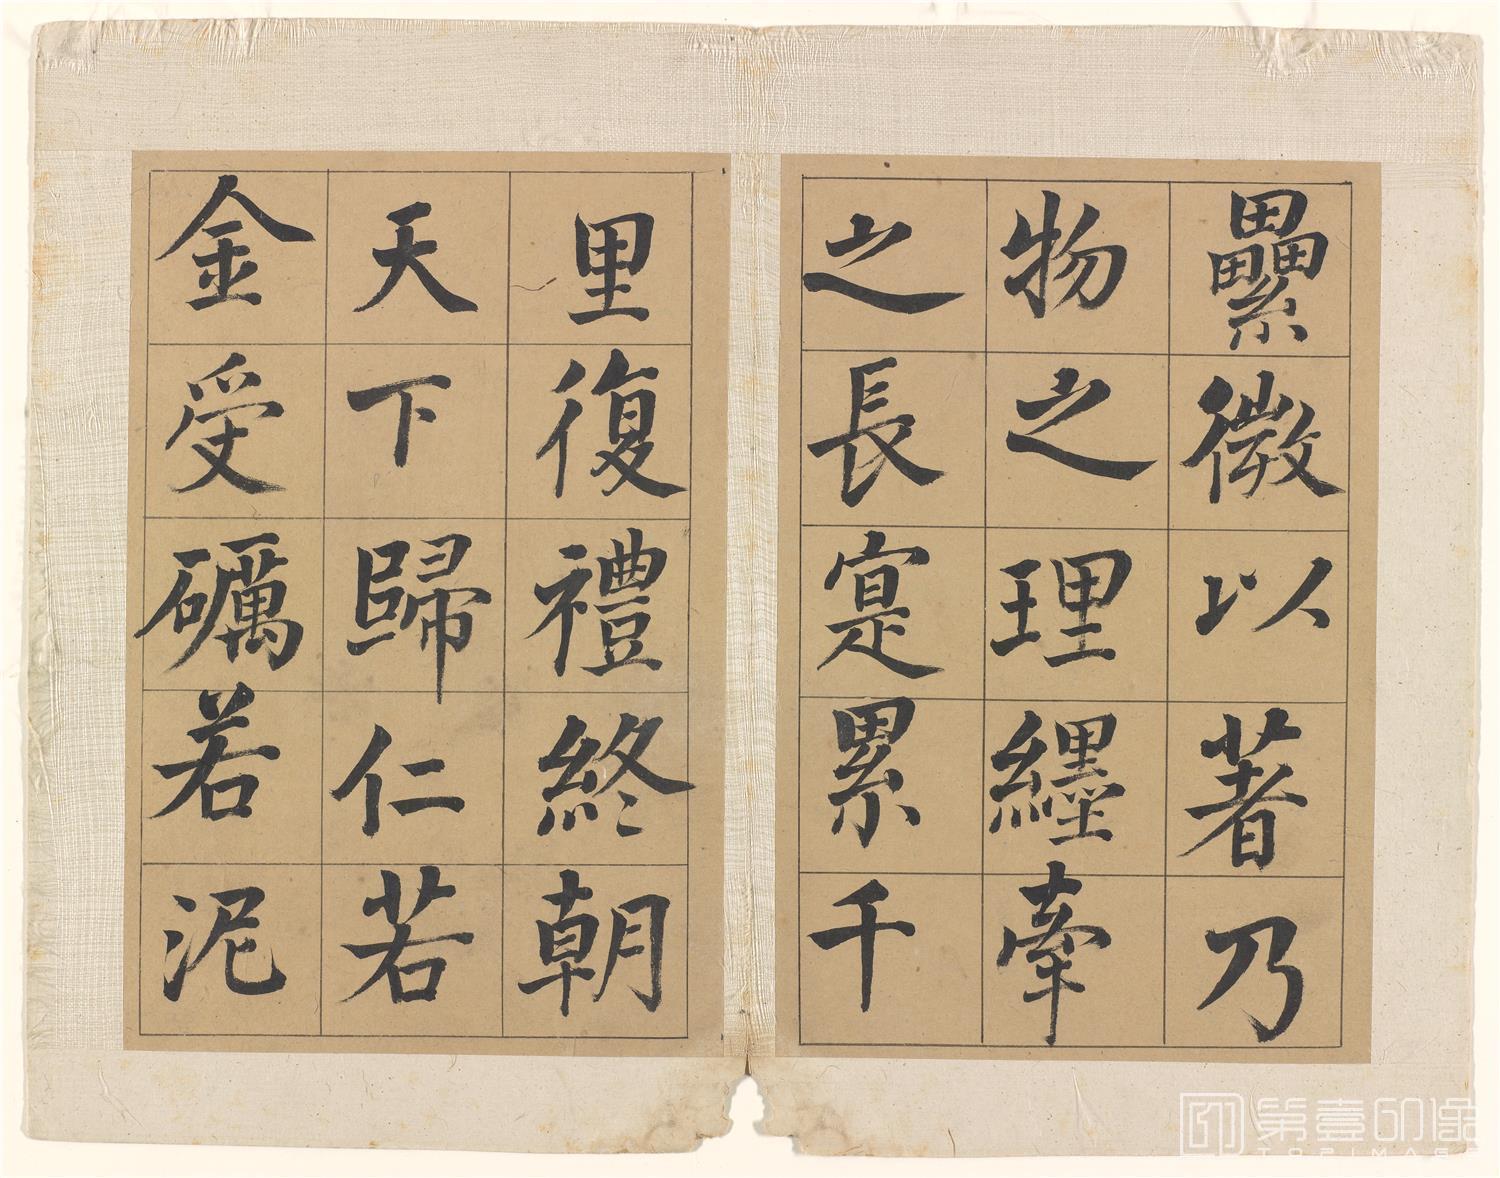 纍微以著乃
物之理纆牽
之長寔累千
里復禮終朝
天下歸仁若
金受礪若泥
第壹印像
TOPIMAGE